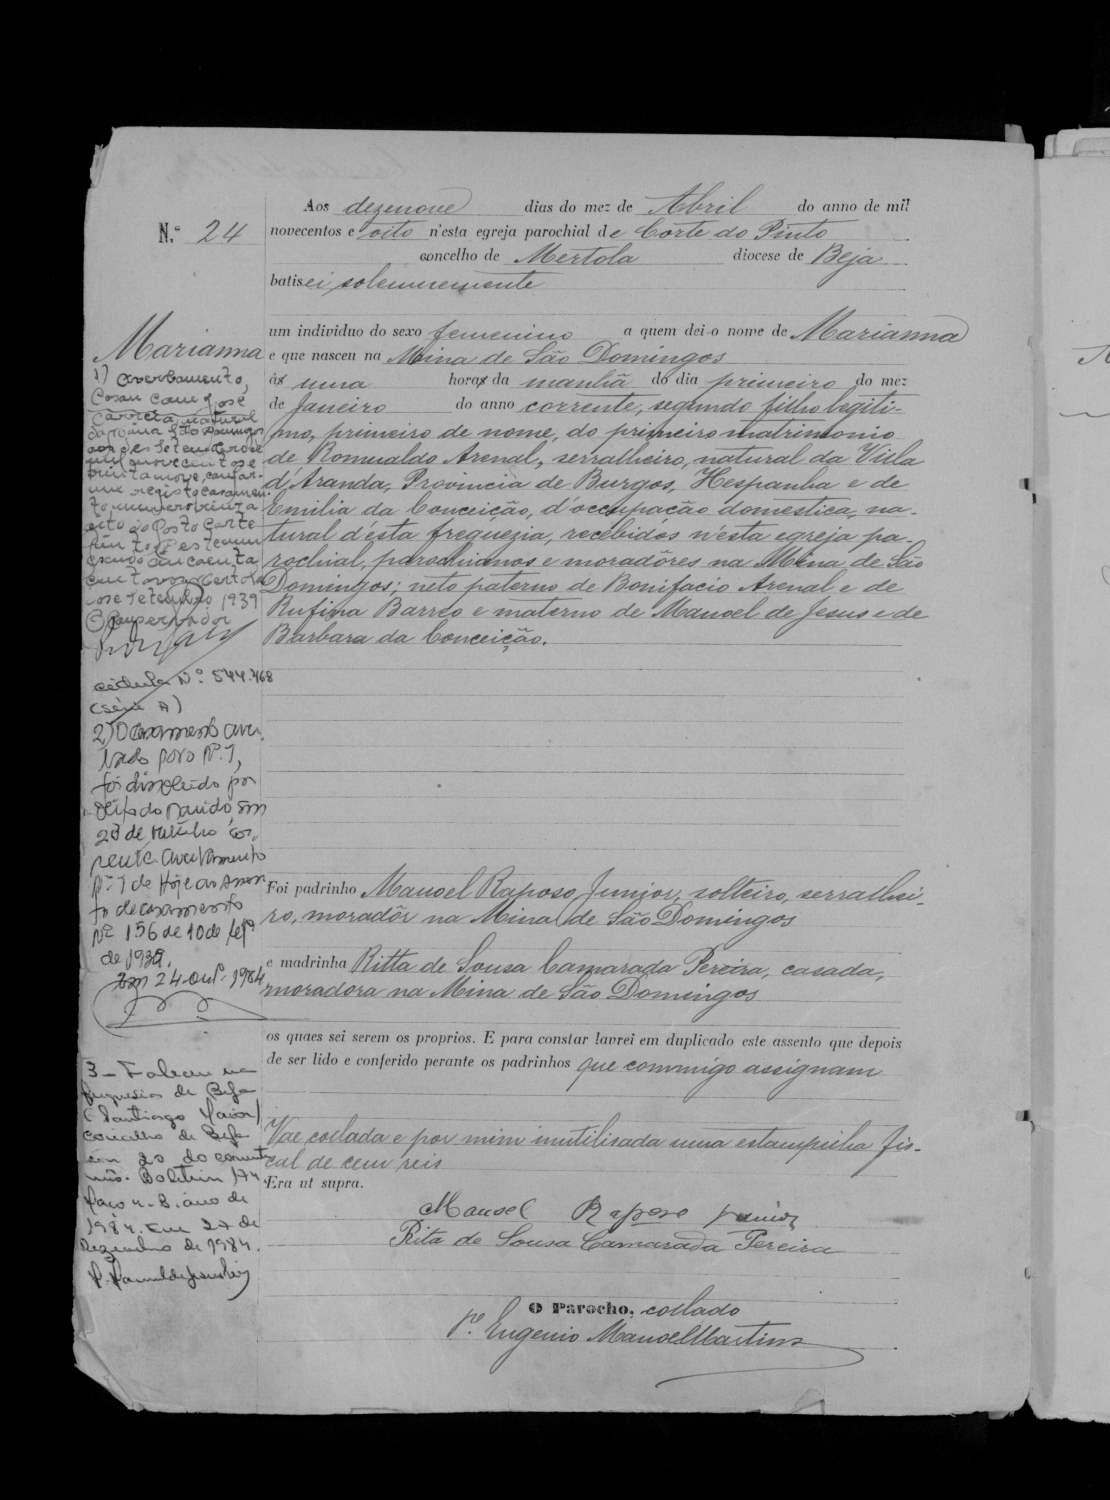 Aos dezenove dias do mez de Abril do anno de mil
N.º 24
novecentos e oito n'esta egreja parochial de Côrte do Pinto
concelho de Mertola diocese de Beja
batisei solemnemente
um individuo do sexo femenino a quem dei o nome de Marianna
e que nasceu na Mina de São Domingos
ás uma horas da manhã do dia primeiro do mez
de Janeiro do anno corrente, segundo filho legiti-
mo, primeiro de nome, do primeiro matrimonio
de Romualdo Arenal, serralheiro, natural da Villa
d'Aranda, Provincia de Burgos, Hespanha e de
Emilia da Conceição, d'occupação domestica, na-
tural d'ésta freguezia, recebidos n'ésta egreja pa-
rochial, parochianos e moradôres na Mina de São
Domingos; neto paterno de Bonifacio Arenal e de
Rufina Barrso e materno de Manoel de Jesus e de
Barbara da Conceição.
Foi padrinho Manoel Raposo Junior, solteiro, serralhei-
ro, moradôr na Mina de São Domingos
e madrinha Ritta de Sousa Camarada Pereira, casada,
moradora na Mina de São Domingos
os quaes sei serem os proprios. E para constar lavrei em duplicado este assento que depois
de ser lido e conferido perante os padrinhos que commigo assignam
Vae collada e por mim inutilisada uma estampilha fis-
cal de cem reis
Era ut supra.
Manoel Raposo Junior
Rita de Sousa Camarada Pereira
O Parocho, collado
P.e Eugenio Manoel Martins
Marianna
1) Averbamento,
Casou com José
Correia natural
da mina S. to Domingos
aos dez Setembro de
mil novecentos e
trinta nove, confor-
me registo casamen-
to, numero trinta
oito do Posto Corte
Pinto
Mertola
Setembro 1939
O Conservador
cédula N.º 544.468
(série A)
2) O casamento aver-
bado sob o Nº 1,
foi dissolvido por
óbito do marido, em
23 de
rente averbamento
nº 1 de hoje ao assen-
to de casamento
Nº 156 de 10 de Setº
de 1939.
Em 24 out. 1984
3 - Faleceu na
freguesia de Beja
(Santiago Maior)
concelho de Beja
em 20 do corrente
mês. Boletim 174,
Maço n.º 8, ano de
1984. Em 27 de
Dezembro de 1984.